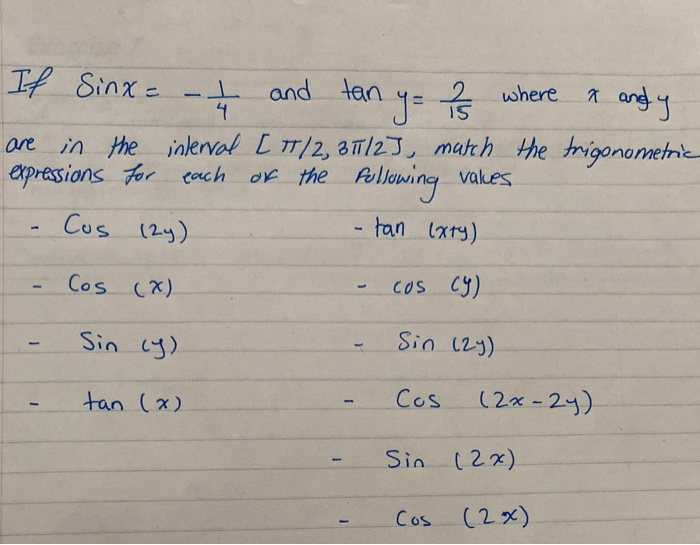 If Sinx = - 1/4 and tan y = 2/15 where x and y
are in the interval [π/2, 3π/2], match the trigonometric
expressions for each of the following values
- Cos (2y) - tan (x+y)
- Cos (x) - cos (y)
- Sin (y) - Sin (2y)
- tan (x) - Cos (2x-2y)
- Sin (2x)
- Cos (2x)